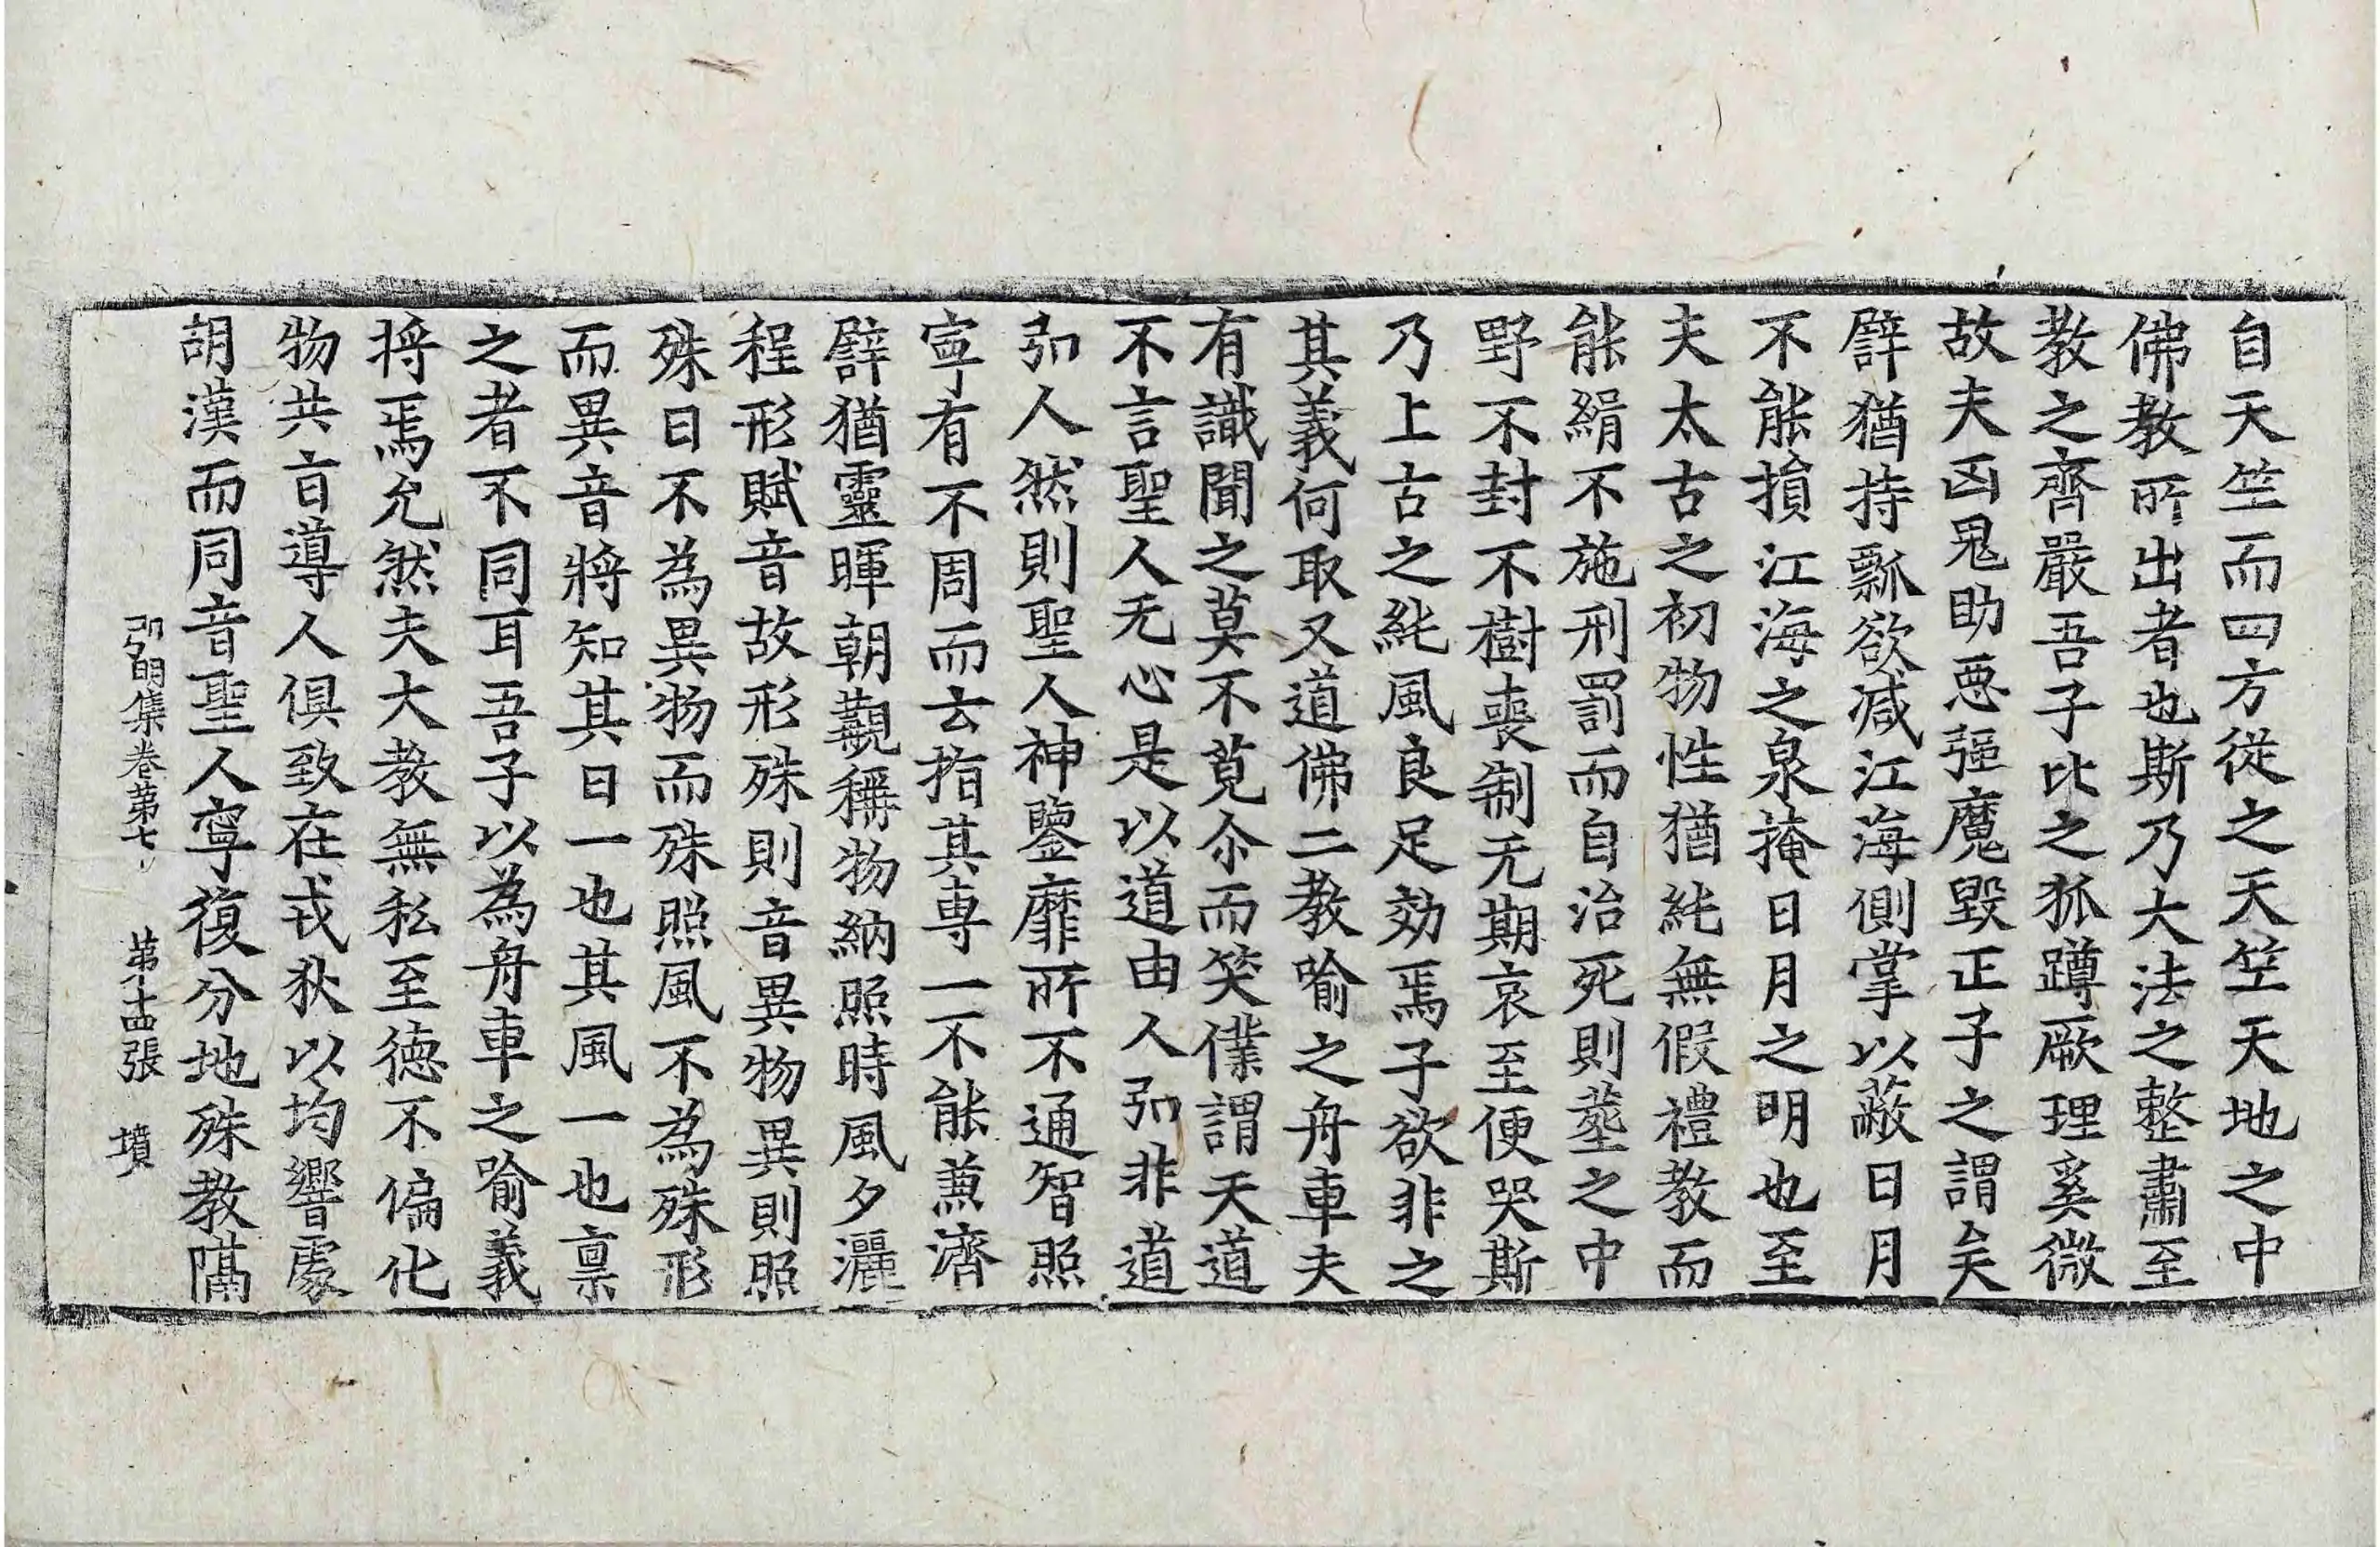 自天竺而四方從之天竺天地之中
佛教所出者也斯乃大法之整肅至
教之齊嚴吾子比之狐蹲厥理奚微
故夫凶鬼助惡強魔毀正子之謂矣
譬猶持瓢欲减江海側掌以蔽日月
不能損江海之泉掩日月之明也至
夫太古之初物性猶純無假禮教而
能緝不施刑罰而自治死則葬之中
野不封不樹喪制无期哀至便哭斯
乃上古之純風良足効焉子欲非之
其義何取又道佛二教喻之舟車夫
有識聞之莫不莧尒而笑僕謂天道
不言聖人无心是以道由人弘非道
弘人然則聖人神鑒靡所不通智照
寧有不周而云指其專一不能兼濟
譬猶靈暉朝觀稱物納照時風夕灑
程形賦音故形殊則音異物異則照
殊日不為異物而殊照風不為殊形
而異音將知其日一也其風一也禀
之者不同耳吾子以為舟車之喻義
將焉允然夫大教無私至德不偏化
物共旨導人俱致在戎狄以均響處
胡漢而同音聖人寧復分地殊教隔
弘明集卷第七 第十四張 墳